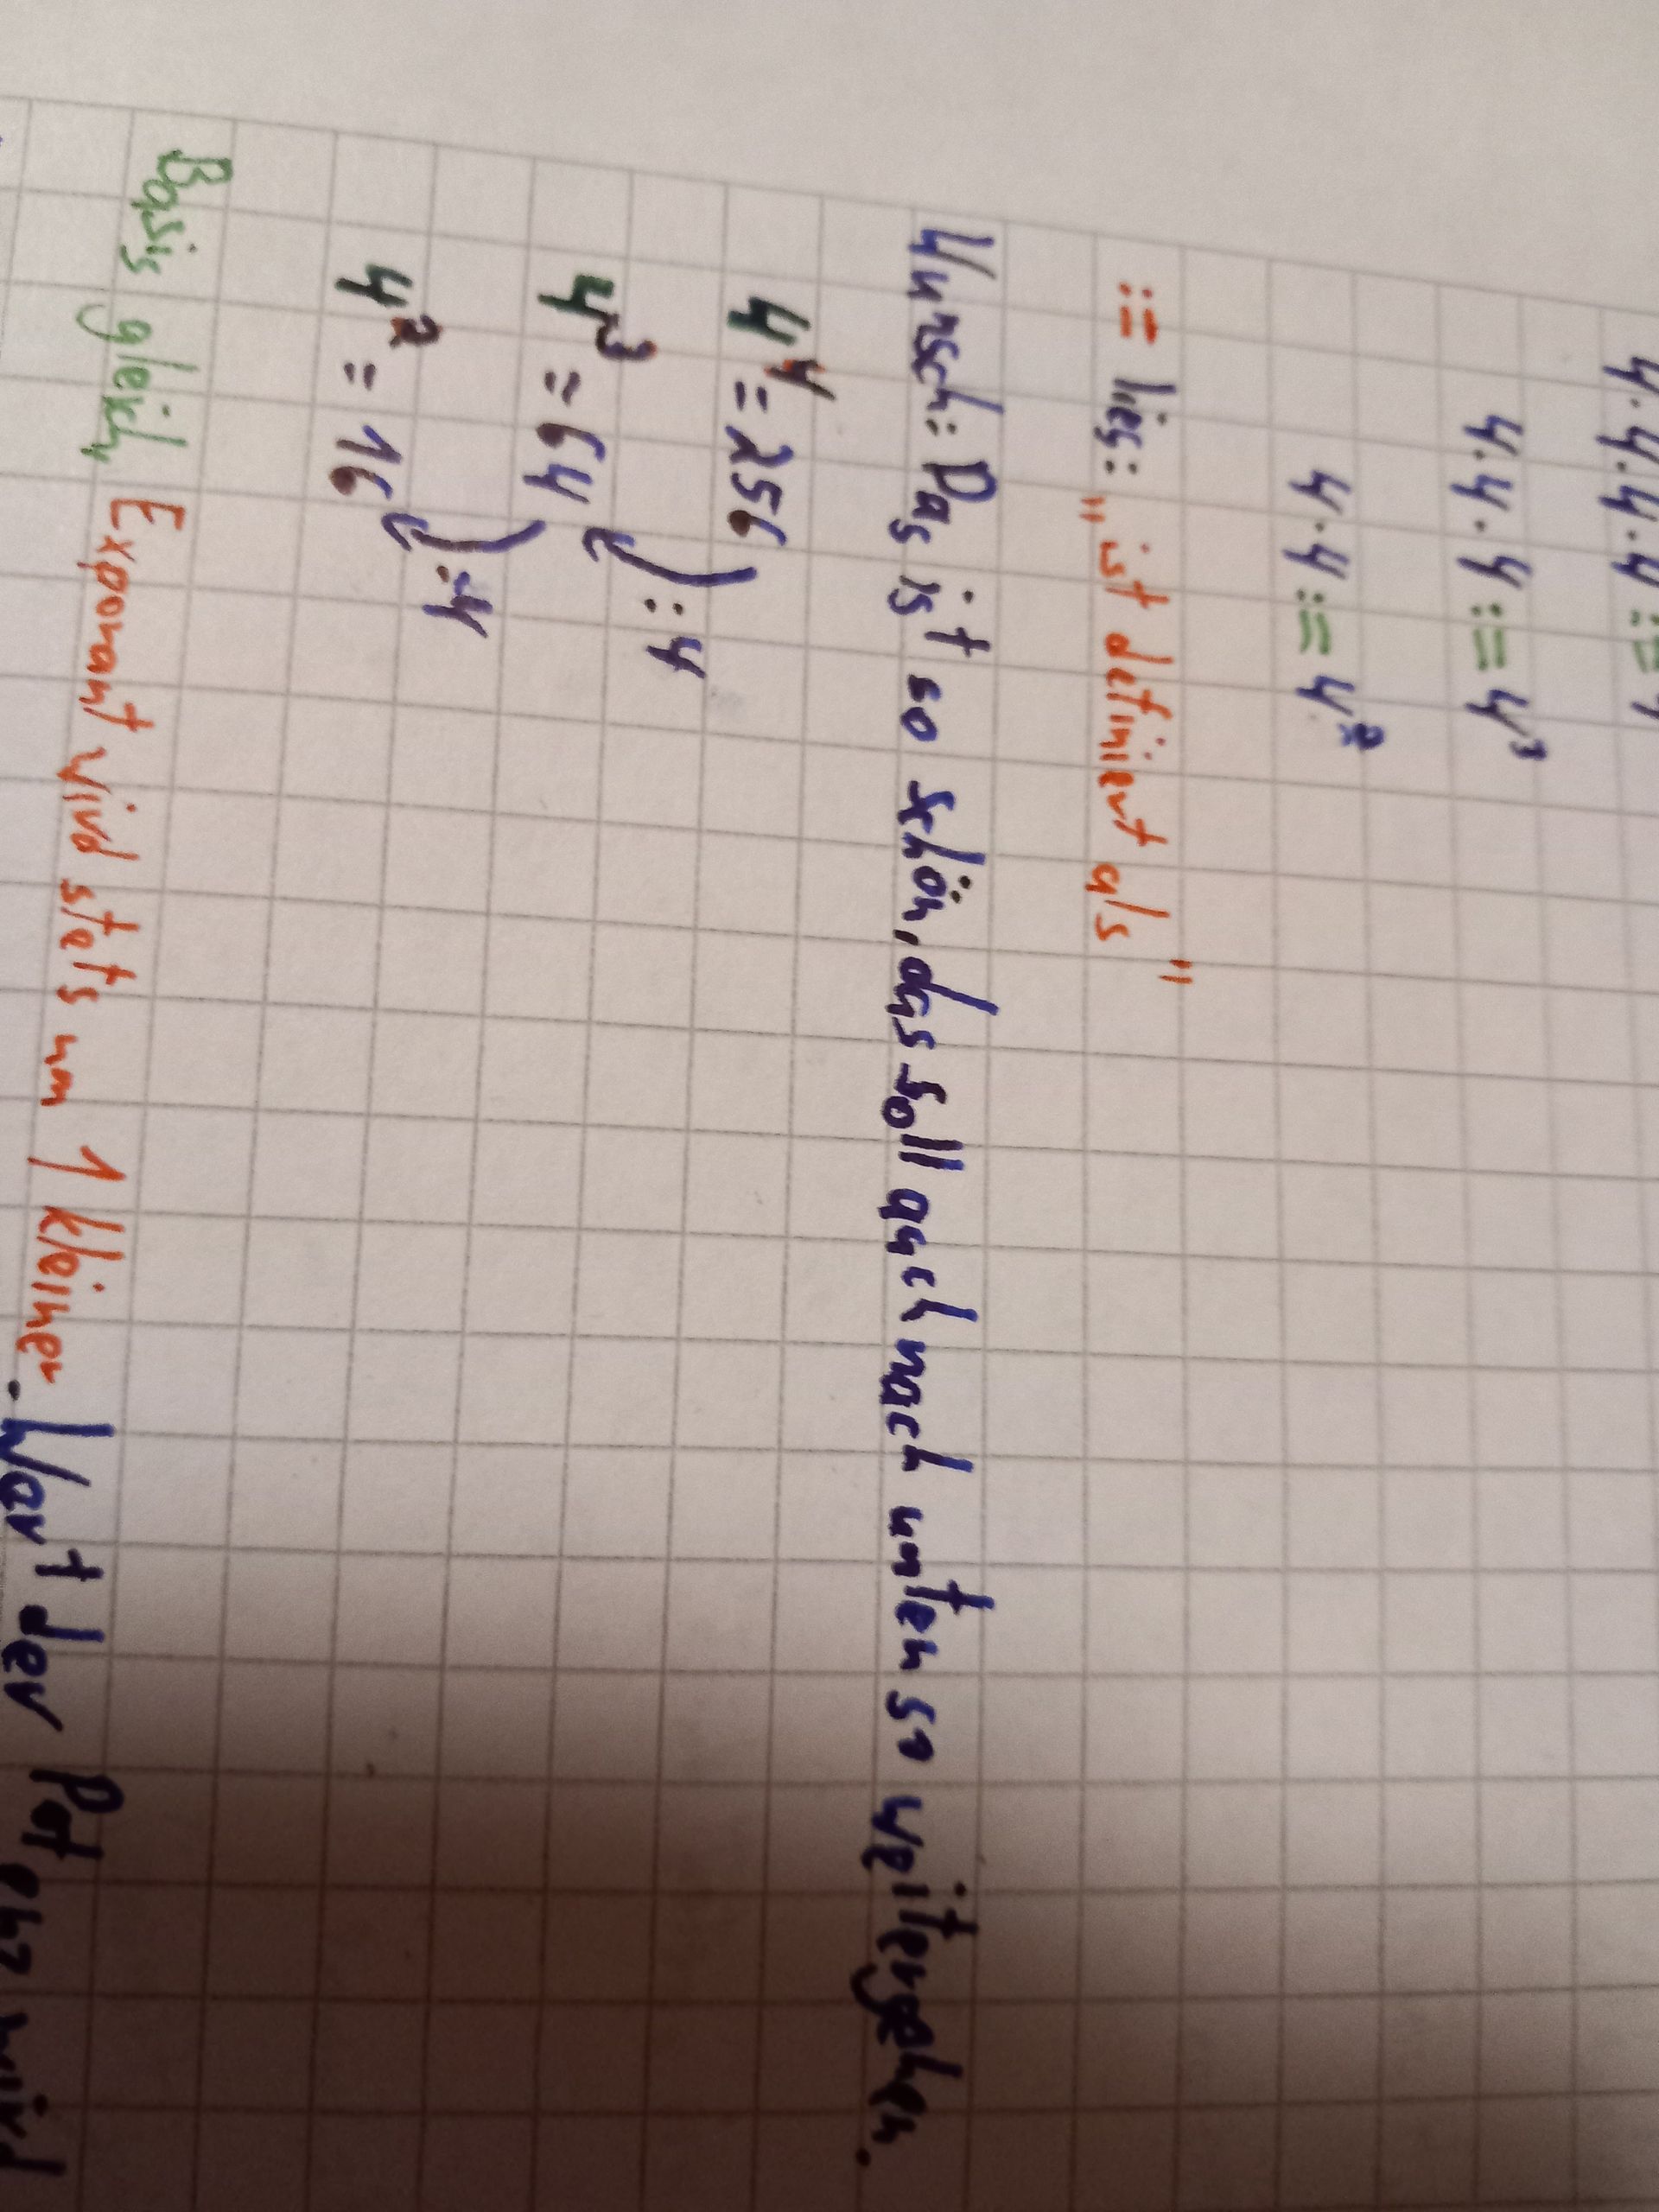 4·4·4·4 :=
4·4·4 := 4³
4·4 := 4²
:= lies: "ist definiert als"
Wunsch: Das ist so schön, das soll auch nach unten so weitergehen.
4⁴ = 256
:4
4³ = 64
:4
4² = 16
Basis gleich, Exponant wird stets um 1 kleiner. Wert der Potenz wird